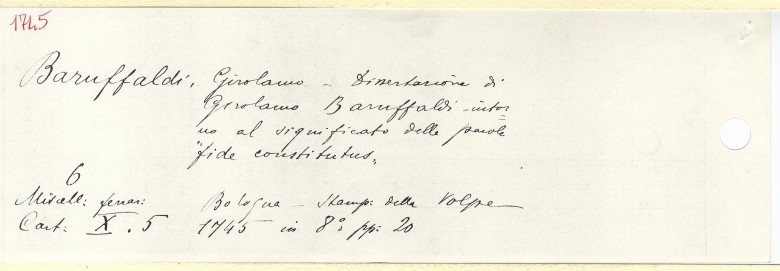 1745
Baruffaldi, Girolamo - Dissertazione di
Girolamo Baruffaldi intor=
no al significato delle parole
"fide constitutus„
6
Miscell: ferrar: Bologna - Stamp: della Volpe
Cart: X. 5 1745 in 8°: pp: 20